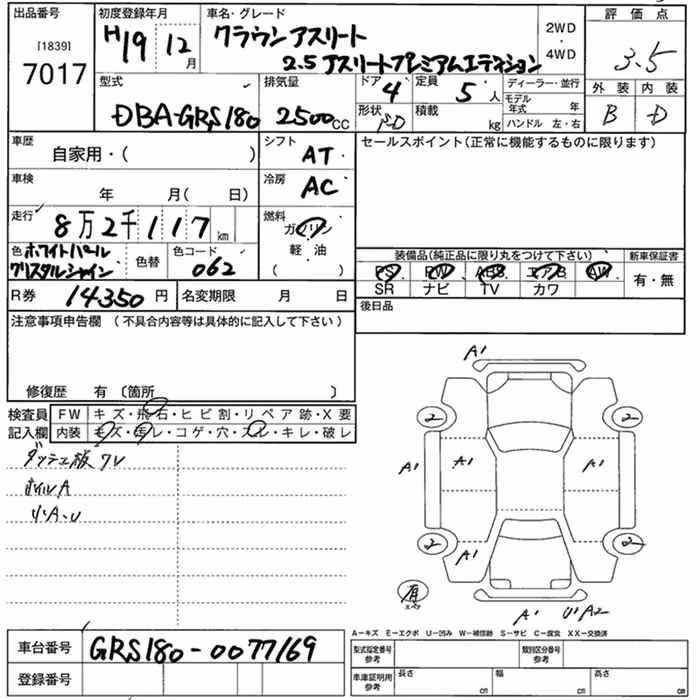 出品番号
[1839]
7017
初度登録年月
H19 12月
車名・グレード
クラウンアスリート
2.5 アスリートプレミアムエディション
2WD
・
4WD
評価点
3.5
外装 内装
B D
型式
DBA-GRS180
排気量
2500CC
ドア
4
形状
SD
定員
5人
積載
kg
ディーラー・並行
モデル年式 年
ハンドル 左・右
車歴
自家用・( )
シフト
AT
車検
年 月( 日)
冷房
AC
走行
8万2千117km
燃料
ガソリン
軽・油
( )
色 ホワイトパール
クリスタルシャイン
色替
色コード
062
R券 14350円
名変期限 月 日
セールスポイント(正常に機能するものに限ります)
装備品(純正品に限り丸をつけて下さい)
PS PW ABS エアB AW
SR ナビ TV カワ
新車保証書
有・無
後日品
注意事項申告欄 (不具合内容等は具体的に記入して下さい)
修復歴 有 〔箇所 〕
検査員
記入欄
FW キズ・飛石・ヒビ割・リペア跡・X要
内装 キズ・汚レ・コゲ・穴・スレ・キレ・破レ
ダッシュ板ワレ
ホイルA
小A・U
A1
2 2
A1 A1 A1
2 2
A1
有
A1 U1 A2
A−キズ E−エクボ U−凹ミ W−補修跡 S−サビ C−腐食 XX−交換済
車台番号 GRS180-0077169
登録番号
型式指定番号
参考
類別区分番号
参考
車庫証明用
参考
長さ cm
幅 cm
高さ cm